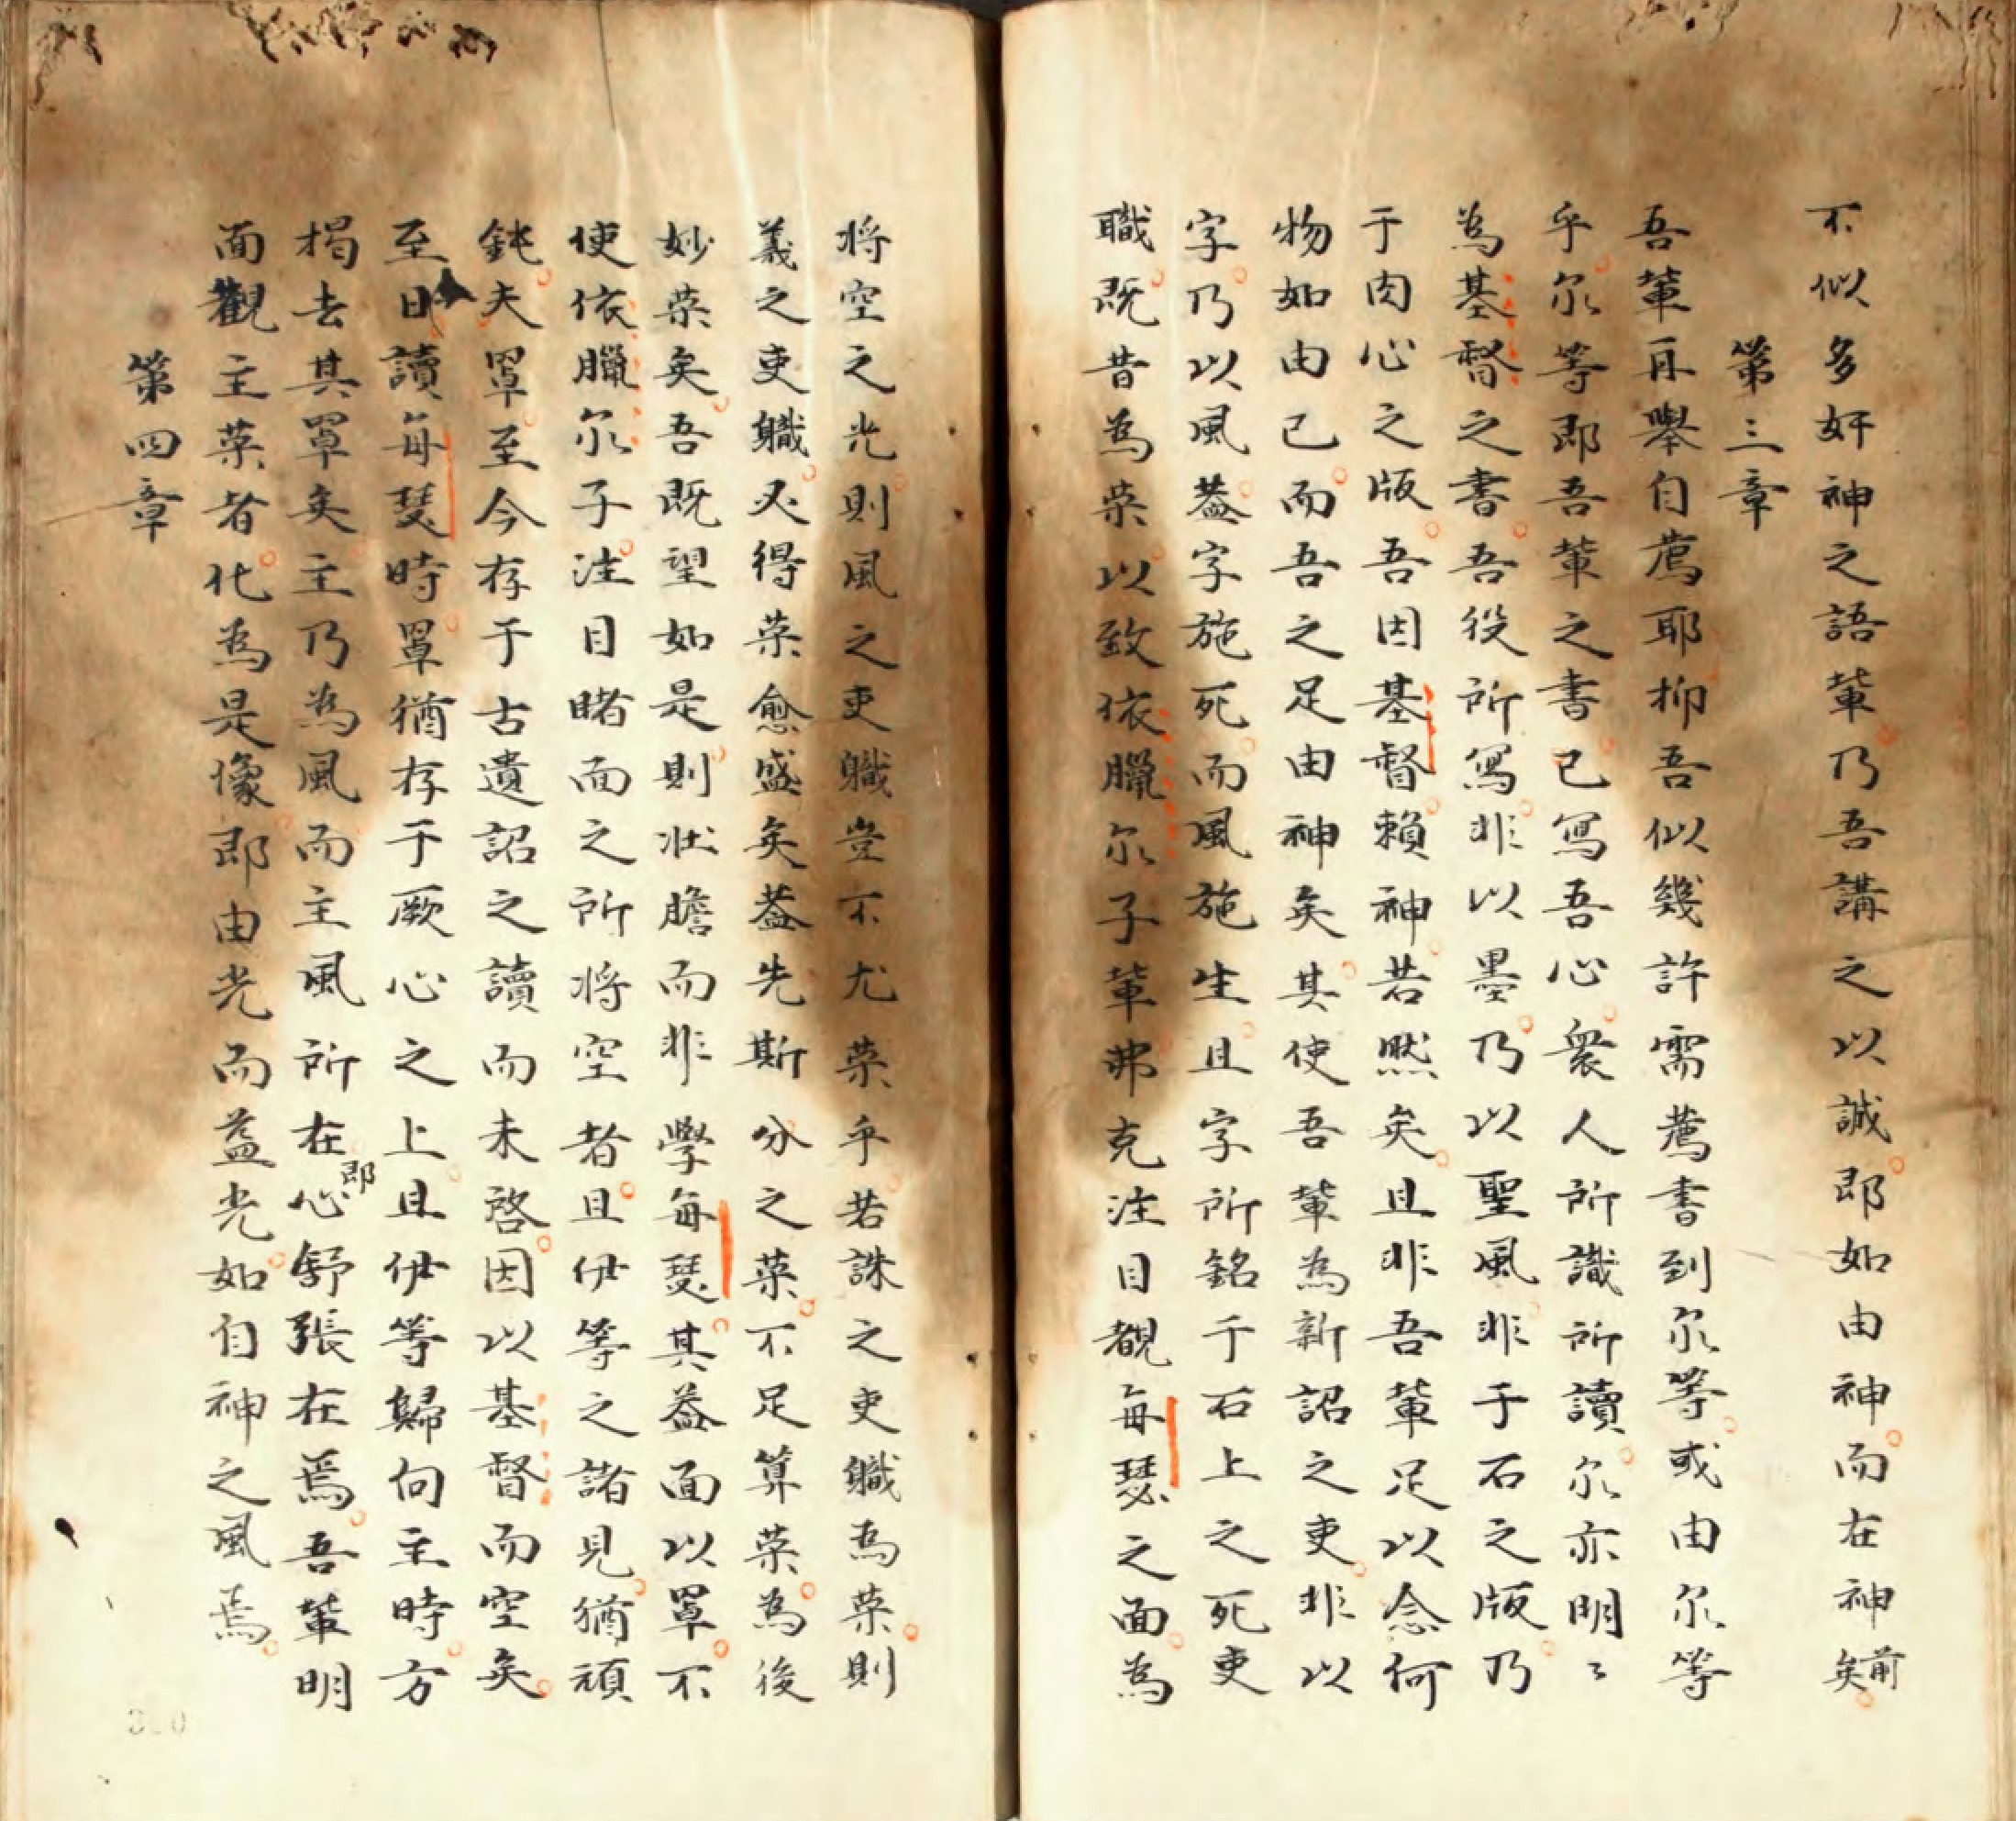 不似多奸神之語輩乃吾講之以誠即如由神而在神前矣
第三章
吾輩再舉自薦耶抑吾似幾許需薦書到尔等或由尔等
乎尔等即吾輩之書已寫吾心衆人所識所讀尔亦明〻
為基督之書吾役所寫非以墨乃以聖風非于石之版乃
于肉心之版吾因基督賴神若然矣且非吾輩足以念何
物如由己而吾之足由神矣其使吾輩為新詔之吏非以
字乃以風葢字施死而風施生且字所銘于石上之死吏
職既昔為荣以致依臘尔子輩弗克注目覩每瑟之面為
將空之光則風之吏職豈不尤荣乎若誅之吏職為荣則
義之吏職必得荣愈盛矣葢先斯分之荣不足算荣為後
妙荣矣吾既望如是則壮膽而非學每瑟其葢面以罩不
使依臘尔子注目睹面之所將空者且伊等之諸見猶頑
鈍夫罩至今存于古遺詔之讀而未啓因以基督而空矣
至日讀每瑟時罩猶存于厥心之上且伊等歸向主時方
揭去其罩矣主乃為風而主風所在即心舒張在焉吾輩明
面觀主荣者化為是像即由光而益光如自神之風焉
第四章